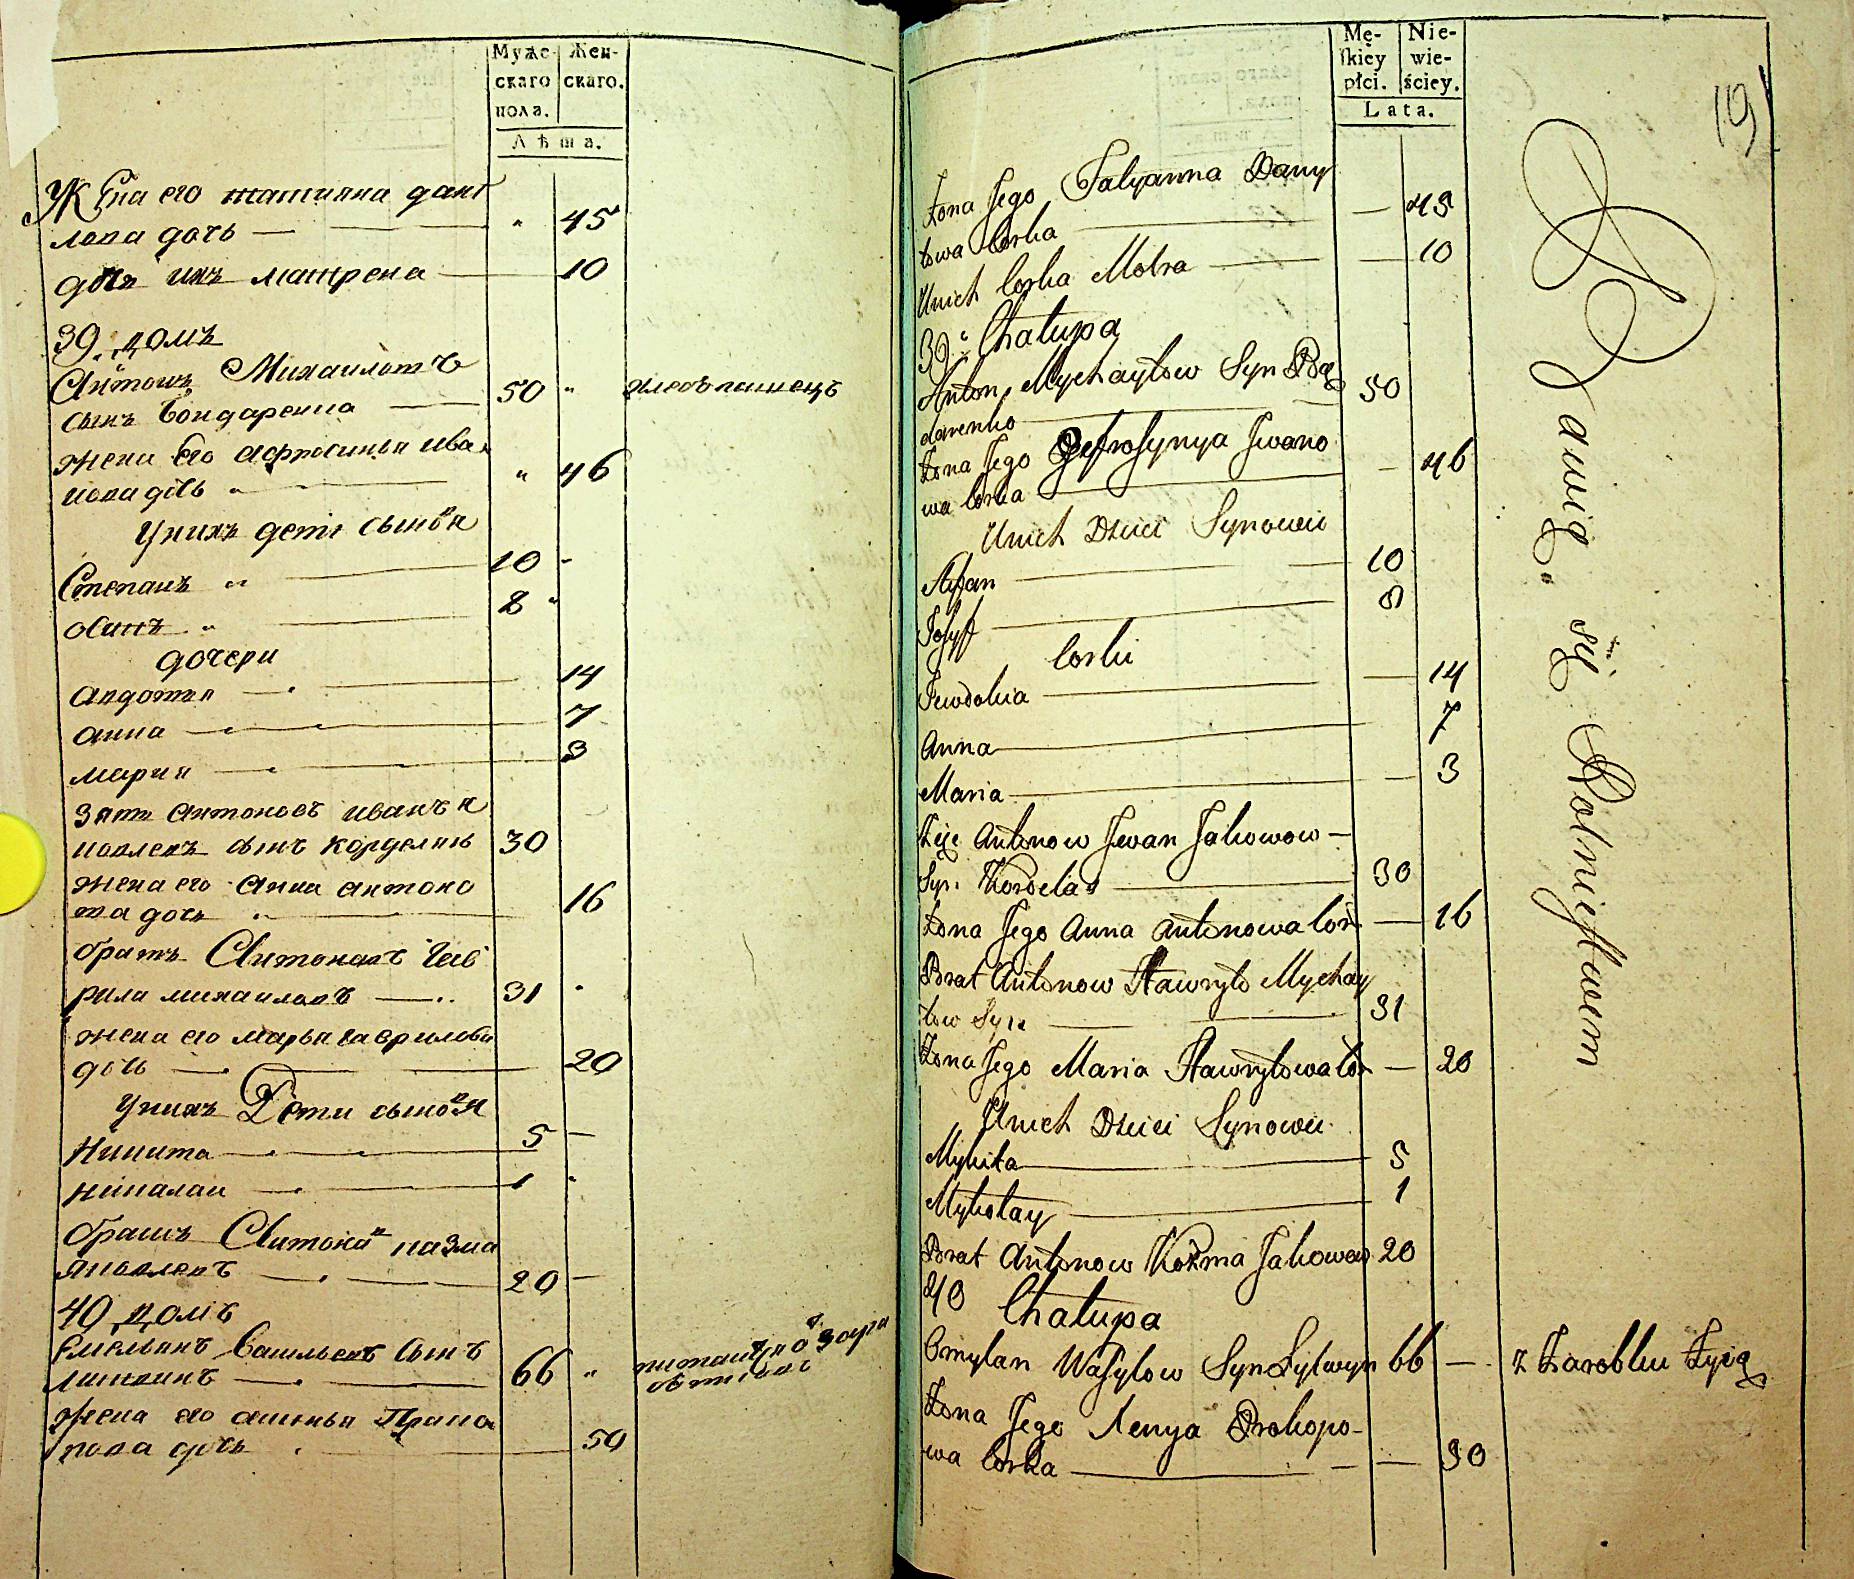 Муже-
скаго
пола.
Жен-
скаго.
Лѣта.
Жена его татияна дани
лова дочь — " 45
дочь ихъ матрена — 10
39. домъ
Антонъ Михаиловъ
сынъ бондаренка — 50 " хлебопашецъ
жена Его афросинья ива
нова дочь " — " 46
У нихъ дети сыновя
Степанъ " — 10 -
осипъ " — 8 "
дочери
авдотья — 14
анна — 7
мария — 3
зять антоновъ иванъ я
ковлевъ сынъ корделянъ 30
жена его анна антоно
ва дочь " — 16
братъ Антоновъ гав
рила михаиловъ — 31 "
жена его марья гаврилова
дочь — 20
У нихъ Дети сыновя
Никита — 5 —
николаи — 1 "
братъ Антоновъ казма
яковлевъ — 20 —
40 домъ
Емельянъ васильевъ сынъ
литвинъ — 66 "
жена его аксинья Прако
пова дочь — 50
Mę-
skiey
płci.
Nie-
wie-
ściey.
Lata.
19
Żona Jego Tatyanna Dany
łowa Corka — — 45
Unich Corka Motra — — 10
39 Chałupa
Anton Mychayłow Syn Bą
darenko — 50
Żona Jego Jefrosynya Jwano
wa Corka — — 46
Unich Dzieci Synowie
Stefan — 10
Josyf — 8
Corki
Jewdokia — — 14
Anna — 7
Maria — — 3
Zięć Antonow Jwan Jakowow —
Syn Kordelas — 30
Żona Jego Anna Antonowa Cór — 16
Brat Antonow Hawryło Mychay
łow Syn — 31
Żona Jego Maria Hawryłowa Cór — 20
Unich Dzieci Synowie
Mykita — 5
Mykołay — 1
Brat Antonow Kozma Jakowow 20
40 Chałupa
Omylan Wasylow Syn Lytwyn 66 — z Zarobku Żyią
Żona Jego Xenya Prokopo-
wa Corka — — 50
Bawią się Rolnictwem